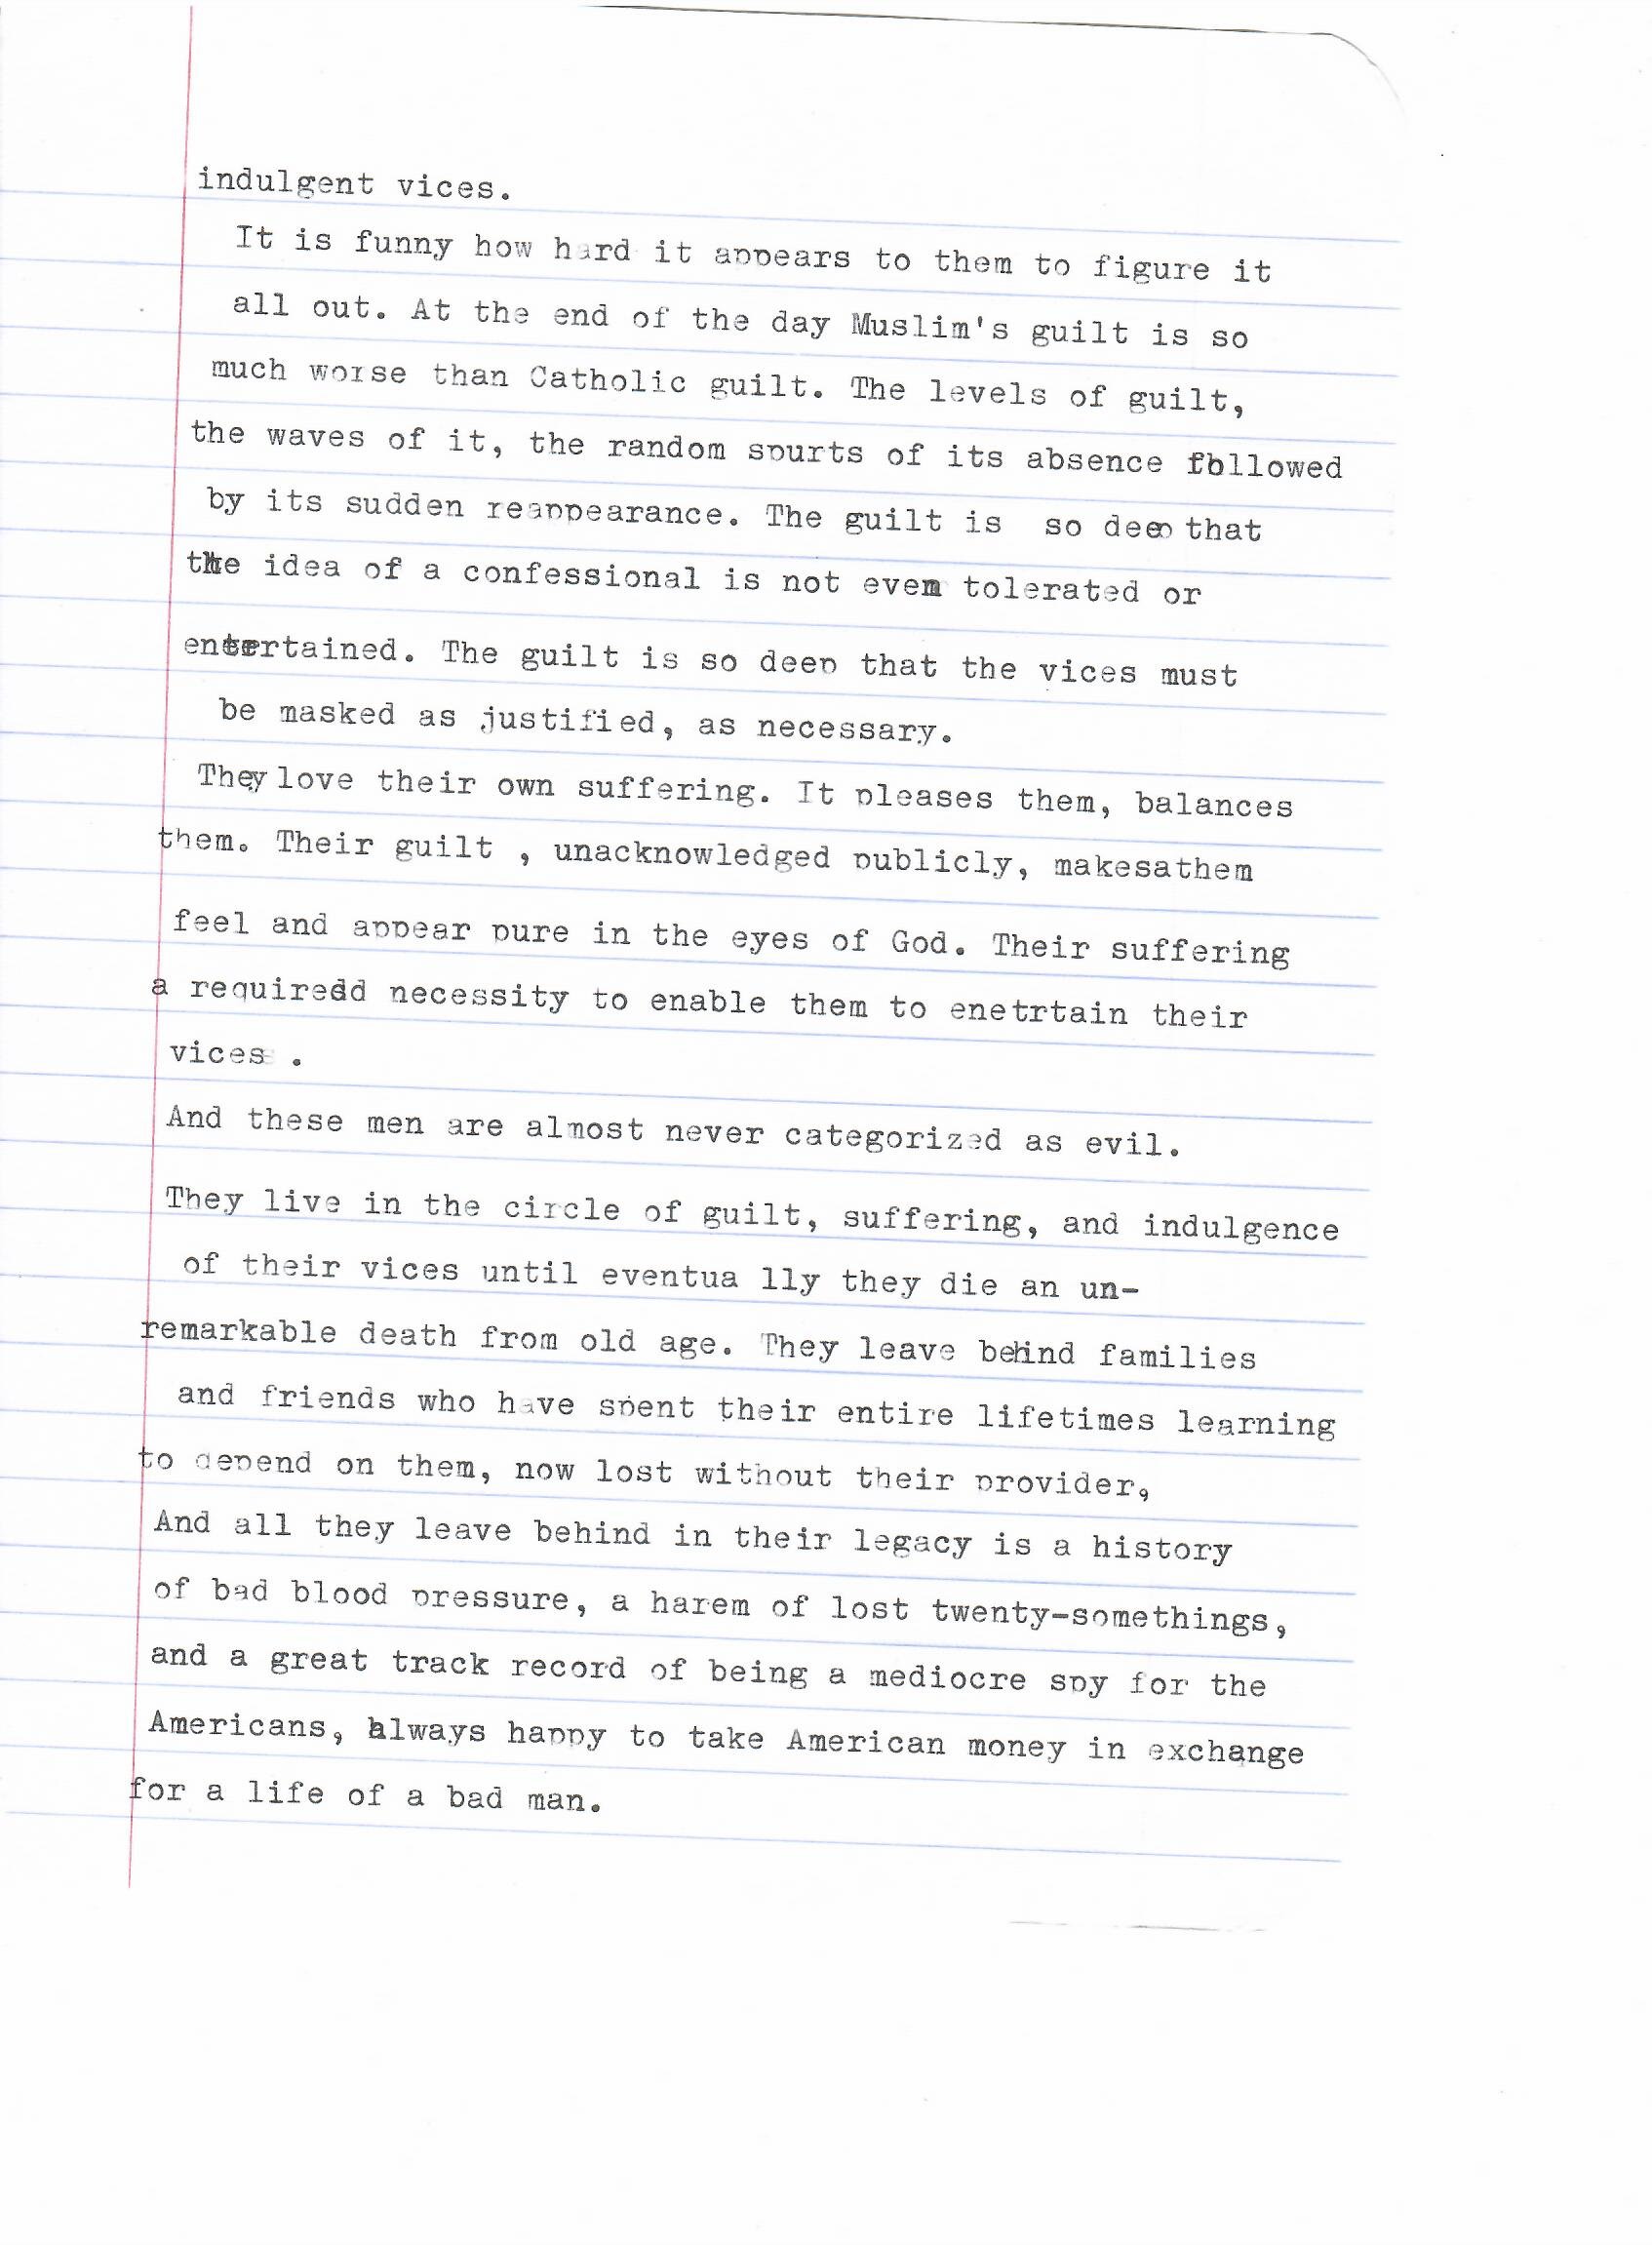 indulgent vices.
It is funny how hard it appears to them to figure it
all out. At the end of the day Muslim's guilt is so
much worse than Catholic guilt. The levels of guilt,
the waves of it, the random spurts of its absence followed
by its sudden reappearance. The guilt is so deep that
the idea of a confessional is not even tolerated or
entertained. The guilt is so deep that the vices must
be masked as justified, as necessary.
They love their own suffering. It pleases them, balances
them. Their guilt , unacknowledged publicly, makesathem
feel and appear pure in the eyes of God. Their suffering
a requiredd necessity to enable them to enetrtain their
vices .
And these men are almost never categorized as evil.
They live in the circle of guilt, suffering, and indulgence
of their vices until eventua lly they die an un-
remarkable death from old age. They leave behind families
and friends who have spent their entire lifetimes learning
to depend on them, now lost without their provider,
And all they leave behind in their legacy is a history
of bad blood pressure, a harem of lost twenty-somethings,
and a great track record of being a mediocre spy for the
Americans, always happy to take American money in exchange
for a life of a bad man.